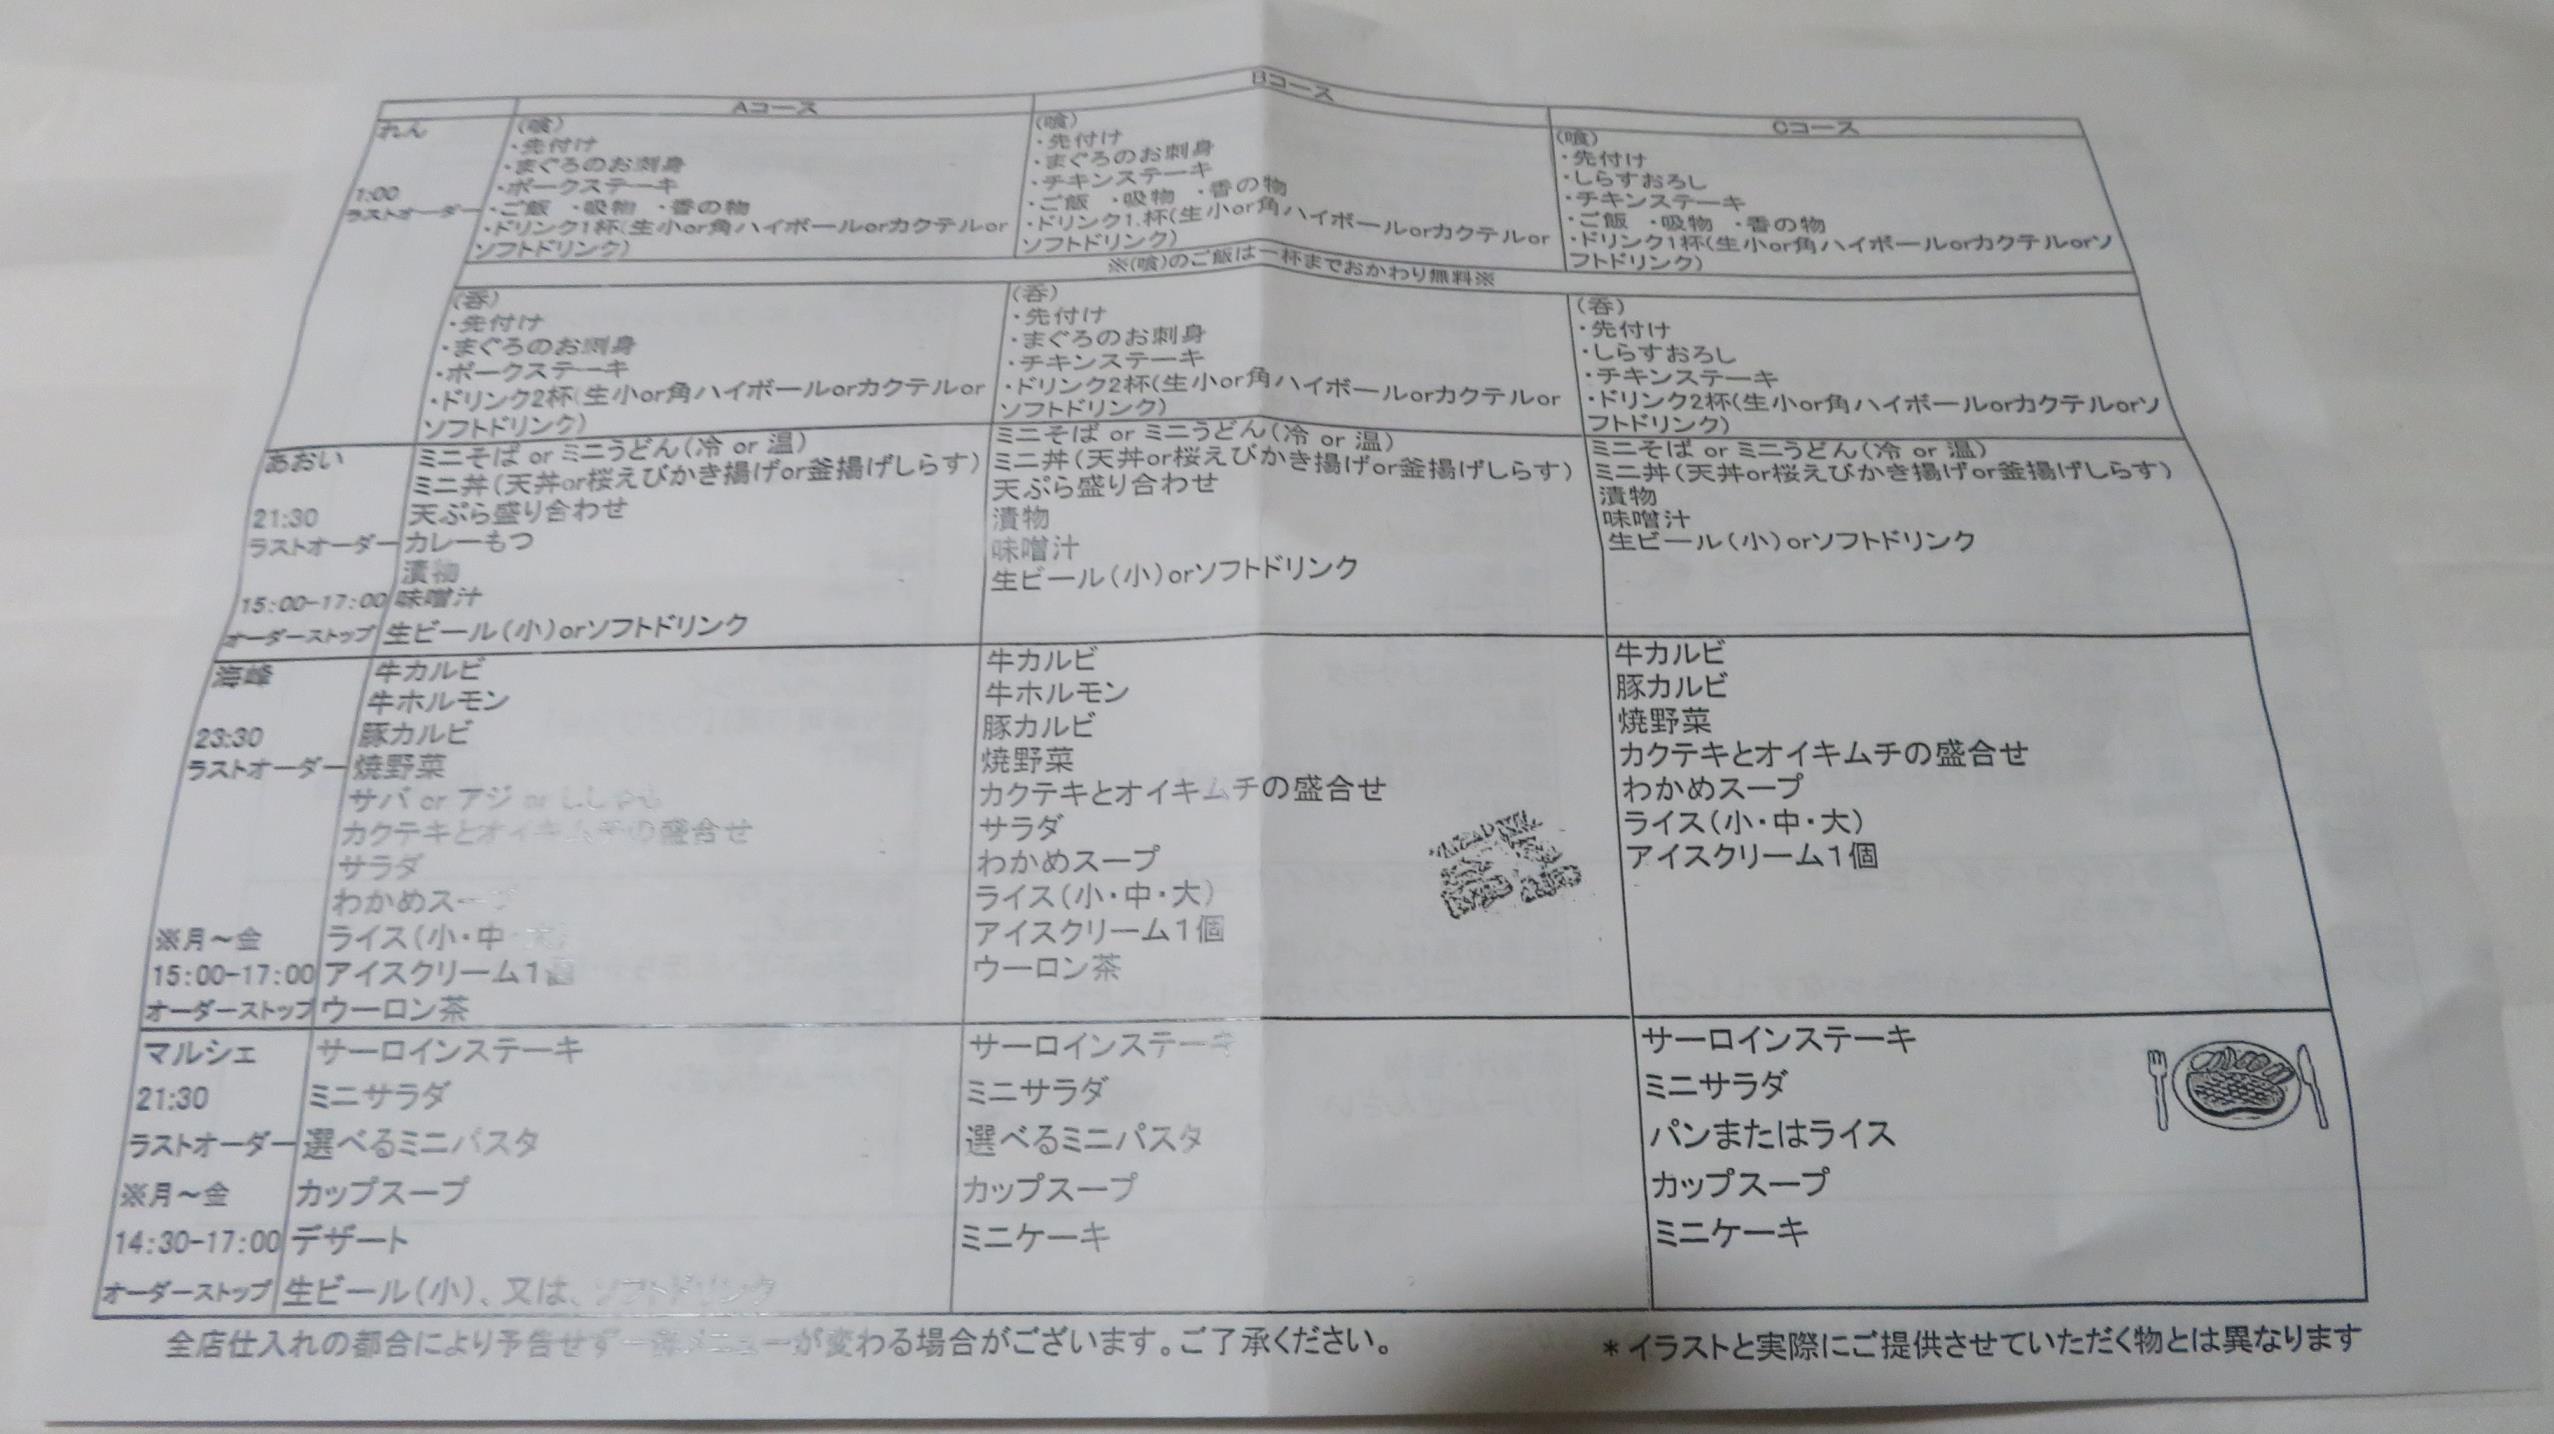 Aコース
Bコース
Cコース
れん
1:00
ラストオーダー
(喰)
・先付け
・まぐろのお刺身
・ポークステーキ
・ご飯 ・吸物 ・香の物
・ドリンク1杯(生小or角ハイボールorカクテルor
ソフトドリンク)
(喰)
・先付け
・まぐろのお刺身
・チキンステーキ
・ご飯 ・吸物 ・香の物
・ドリンク1.杯(生小or角ハイボールorカクテルor
ソフトドリンク)
(喰)
・先付け
・しらすおろし
・チキンステーキ
・ご飯 ・吸物 ・香の物
・ドリンク1杯(生小or角ハイボールorカクテルorソ
フトドリンク)
※(喰)のご飯は一杯までおかわり無料※
(呑)
・先付け
・まぐろのお刺身
・ポークステーキ
・ドリンク2杯(生小or角ハイボールorカクテルor
ソフトドリンク)
(呑)
・先付け
・まぐろのお刺身
・チキンステーキ
・ドリンク2杯(生小or角ハイボールorカクテルor
ソフトドリンク)
(呑)
・先付け
・しらすおろし
・チキンステーキ
・ドリンク2杯(生小or角ハイボールorカクテルorソ
フトドリンク)
あおい
21:30
ラストオーダー
15:00-17:00
オーダーストップ
ミニそば or ミニうどん(冷 or 温)
ミニ丼(天丼or桜えびかき揚げor釜揚げしらす)
天ぷら盛り合わせ
カレーもつ
漬物
味噌汁
生ビール(小)orソフトドリンク
ミニそば or ミニうどん(冷 or 温)
ミニ丼(天丼or桜えびかき揚げor釜揚げしらす)
天ぷら盛り合わせ
漬物
味噌汁
生ビール(小)orソフトドリンク
ミニそば or ミニうどん(冷 or 温)
ミニ丼(天丼or桜えびかき揚げor釜揚げしらす)
漬物
味噌汁
生ビール(小)orソフトドリンク
海峰
23:30
ラストオーダー
※月～金
15:00-17:00
オーダーストップ
牛カルビ
牛ホルモン
豚カルビ
焼野菜
サバ or アジ or ししゃも
カクテキとオイキムチの盛合せ
サラダ
わかめスープ
ライス(小・中・大)
アイスクリーム1個
ウーロン茶
牛カルビ
牛ホルモン
豚カルビ
焼野菜
カクテキとオイキムチの盛合せ
サラダ
わかめスープ
ライス(小・中・大)
アイスクリーム1個
ウーロン茶
牛カルビ
豚カルビ
焼野菜
カクテキとオイキムチの盛合せ
わかめスープ
ライス(小・中・大)
アイスクリーム1個
マルシェ
21:30
ラストオーダー
※月～金
14:30-17:00
オーダーストップ
サーロインステーキ
ミニサラダ
選べるミニパスタ
カップスープ
デザート
生ビール(小)、又は、ソフトドリンク
サーロインステーキ
ミニサラダ
選べるミニパスタ
カップスープ
ミニケーキ
サーロインステーキ
ミニサラダ
パンまたはライス
カップスープ
ミニケーキ
全店仕入れの都合により予告せず一部メニューが変わる場合がございます。ご了承ください。
＊イラストと実際にご提供させていただく物とは異なります